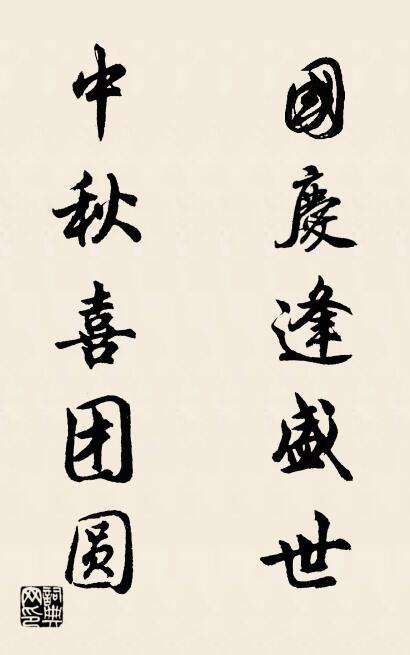 國慶逢盛世
中秋喜团圆
詞典网印